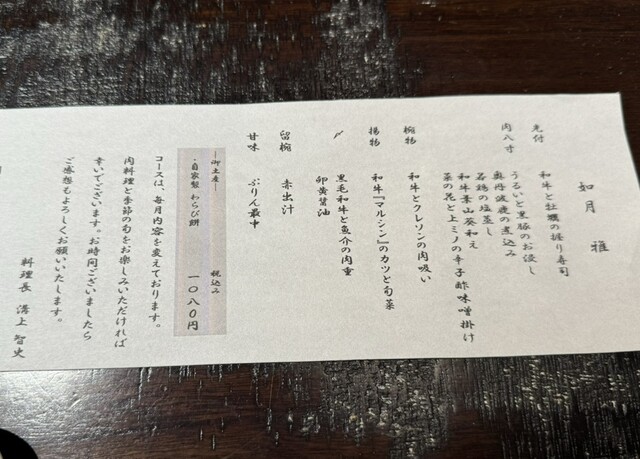 如月 雅
先付 和牛と牡蠣の握り寿司
肉八寸 うるいと黒豚のお浸し
奥丹波鹿の煮込み
若鶏の塩蒸し
和牛葉山葵和え
菜の花と上ミノの辛子酢味噌掛け
椀物 和牛とクレソンの肉吸い
揚物 和牛『マルシン』のカツと旬菜
〆 黒毛和牛と魚介の肉重
卵黄醤油
留椀 赤出汁
甘味 ぷりん最中
―御土産― 税込み
・自家製 わらび餅 一〇八〇円
コースは、毎月内容を変えております。
肉料理と季節の旬をお楽しみいただければ
幸いでございます。お時間ございましたら
ご感想もよろしくお願いいたします。
料理長 溝上 智史